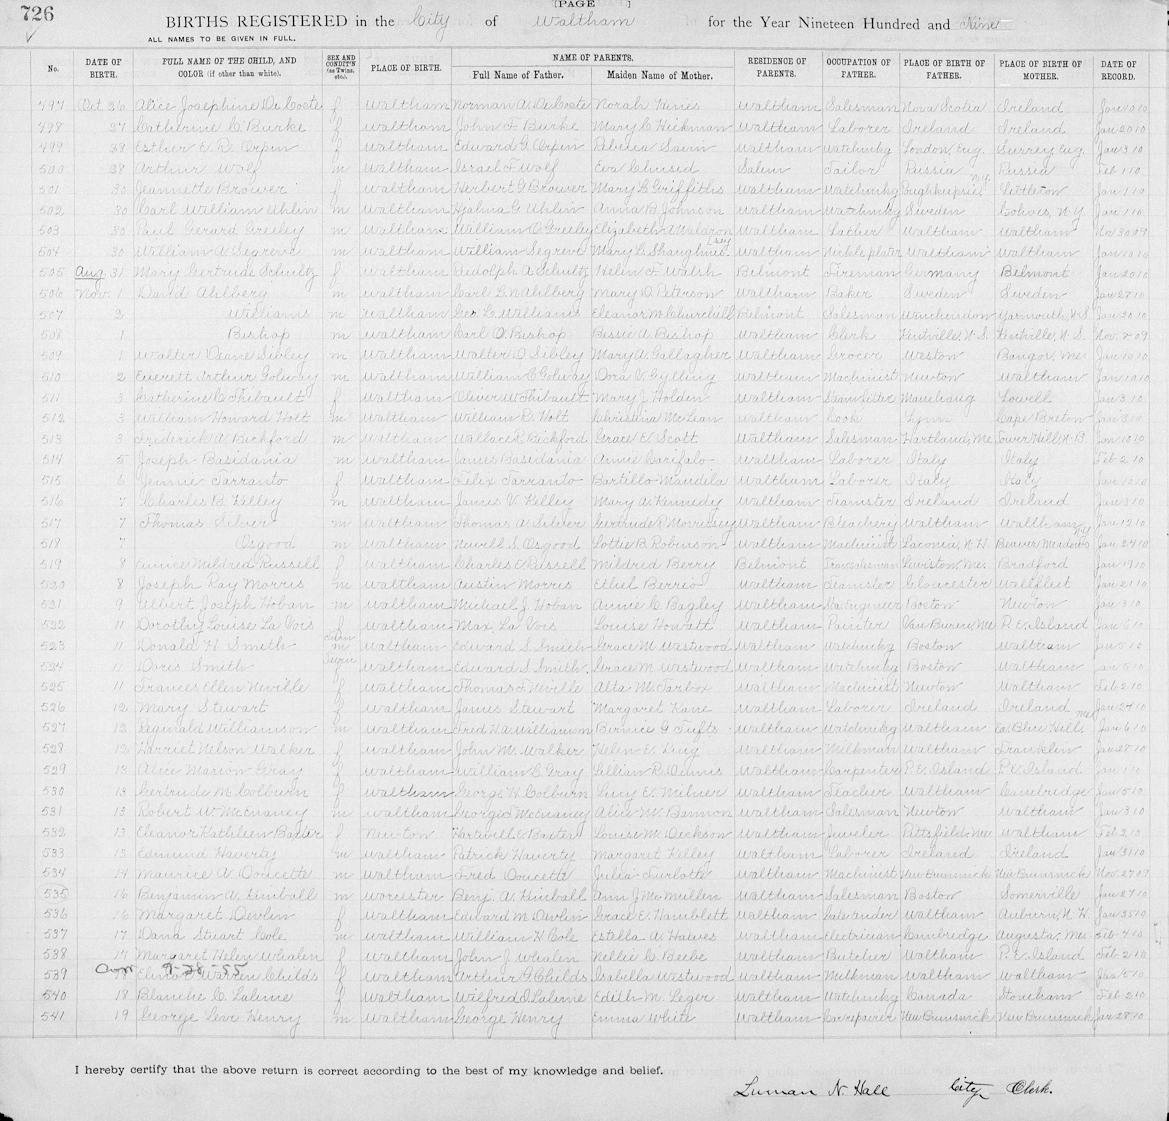 [PAGE ]
726
BIRTHS REGISTERED in the City of Waltham for the Year Nineteen Hundred and Nine
ALL NAMES TO BE GIVEN IN FULL.
No. DATE OF BIRTH. FULL NAME OF THE CHILD, AND COLOR (if other than white). SEX AND CONDIT'N (as Twins, etc.) PLACE OF BIRTH. NAME OF PARENTS. Full Name of Father. Maiden Name of Mother. RESIDENCE OF PARENTS. OCCUPATION OF FATHER. PLACE OF BIRTH OF FATHER. PLACE OF BIRTH OF MOTHER. DATE OF RECORD.
497 Oct. 26 Alice Josephine DeCoste f Waltham Norman A. DeCoste Norah Waltham Salesman Nova Scotia Ireland Jan 10 10
498 27 Catherine C. Burke f Waltham John F Burke Mary C Hickman Waltham Laborer Ireland Ireland Jan 20 10
499 28 Esther E. R. Orpin f Waltham Edward G Orpin Rebecca Savin Waltham Watchmkg London, Eng. Surrey Eng. Jan 3 10
500 28 Arthur Wolf m Waltham Israel F Wolf Eva Salem Tailor Russia Russia Feb 1 10
501 30 Jeannette Brower f Waltham Herbert G Brower Mary L Griffiths Waltham Watchmkg Poughkeepsie N.Y. Littleton Jan 1 10
502 30 Carl William Uhlin m Waltham Hjalma G Uhlin Anna B Johnson Waltham Watchmkg Sweden Cohoes, N.Y. Jan 1 10
503 30 Paul Gerard Greeley m Waltham William C Greeley Elizabeth Waltham Lather Waltham Waltham Nov 30 09
504 30 William A Segreve m Waltham William Segreve Mary L Shaughnessy Waltham Nickle plater Waltham Waltham Jan 10 10
505 Aug. 31 Mary Gertrude Schultz f Waltham Rudolph A Schultz Helen F Walsh Belmont Fireman Germany Belmont Jan 20 10
506 Nov. 1 David Ahlberg m Waltham Carl G. N Ahlberg Mary O Peterson Waltham Baker Sweden Sweden Jan 27 10
507 2 Williams m Waltham Geo. L Williams Eleanor M Churchill Belmont Salesman Winchendon Yarmouth, N.S Jan 20 10
508 1 Bishop m Waltham Carl O. Bishop Bessie A Bishop Waltham Clerk Kentville, N.S. Kentville, N.S. Nov. 2 09
509 1 Walter Deane Sibley m Waltham Walter D Sibley Mary A. Gallagher Waltham Grocer Weston Bangor, Me. Jan 10 10
510 2 Everett Arthur Golway m Waltham William C Golway Dora V. Gylling Waltham Machinist Newton Waltham Jan 10 10
511 3 Catherine C Thibault f Waltham Oliver W Thibault Mary J Holden Waltham Steamfitter Manchaug Lowell Jan 3 10
512 3 William Howard Holt m Waltham William E. Holt Christina McLean Waltham Cook Lynn Cape Breton Jan 3 10
513 3 Frederick A. Bickford m Waltham Wallace R. Bickford Grace E Scott Waltham Salesman Hartland, Me Tower Hill, N.B. Jan 10 10
514 5 Joseph Basidania m Waltham James Basidania Annie Carifalo Waltham Laborer Italy Italy Feb 2 10
515 6 Jennie Tarranto f Waltham Felix Tarranto Bartillo Mandila Waltham Laborer Italy Italy Jan 10 10
516 7 Charles B. Kelley m Waltham James V. Kelley Mary A. Kennedy Waltham Teamster Ireland Ireland Jan 3 10
517 7 Thomas Silver m Waltham Thomas A. Silver Gertrude P Morrissey Waltham Bleachery Waltham Waltham Jan 12 10
518 7 Osgood m Waltham Newell S. Osgood Lottie B. Robinson Waltham Machinist Laconia, N.H. Beaver Meadows N.Y. Jan 24 10
519 8 Eunice Mildred Russell f Waltham Charles E Russell Mildred Berry Belmont Trav. salesman Lewiston, Me. Bradford Jan 19 10
520 8 Joseph Ray Morris m Waltham Austin Morris Ethel Berrio Waltham Teamster Gloucester Wellfleet Jan 21 10
521 9 Albert Joseph Hoban m Waltham Michael J. Hoban Annie C. Bagley Waltham Engineer Boston Newton Jan 3 10
522 11 Dorothy Louise La Vois f Waltham Max La Vois Louise Howatt Waltham Painter Van Buren, Me P.E. Island Jan 6 10
523 11 Donald H. Smith Twin m Waltham Edward S. Smith Grace M Westwood Waltham Watchmkg Boston Waltham Jan 5 10
524 11 Doris Smith Twin f Waltham Edward S. Smith Grace M Westwood Waltham Watchmkg Boston Waltham Jan 5 10
525 11 Frances Ellen Neville f Waltham Thomas F Neville Alta M. Tarbox Waltham Machinist Newton Waltham Feb 2 10
526 12 Mary Stewart f Waltham James Stewart Margaret Kane Waltham Laborer Ireland Ireland Jan 24 10
527 12 Reginald Williamson m Waltham Fred H. Williamson Bernice G Tufts Waltham Watchmkg Waltham Blue Hill, Me Jan 6 10
528 12 Harriet Nelson Walker f Waltham John M. Walker Helen E. Waltham Milkman Waltham Franklin Jan 28 10
529 13 Alice Marion Gray f Waltham William E. Gray Lillian R. Dennis Waltham Carpenter P.E. Island P.E Island Jan 1 10
530 13 Gertrude M Colburn f Waltham George H. Colburn Lucy E. Milner Waltham Teacher Waltham Cambridge Jan 5 10
531 13 Robert W McEnaney m Waltham George F McEnaney Alice M. Bannon Waltham Salesman Newton Waltham Jan 3 10
532 13 Eleanor Kathleen Baxter f Newton Hartwell E Baxter Louise M. Deckson Waltham Jeweler Pittsfield, Me Waltham Feb 2 10
533 13 Edmund Haverty m Waltham Patrick Haverty Margaret Kelley Waltham Laborer Ireland Ireland Jan 31 10
534 14 Maurice A. Doucette m Waltham Fred Doucette Julia Turlotte Waltham Machinist New Brunswick New Brunswick Nov. 27 09
535 16 Benjamin A. Kimball m Worcester Benj. A. Kimball Ann J McMullen Waltham Salesman Boston Somerville Jan 27 10
536 16 Margaret Devlin f Waltham Edward M. Devlin Grace E. Hamblett Waltham Waltham Auburn, N.H. Jan 25 10
537 17 Dana Stuart Cole m Waltham William H Cole Estella A. Hawes Waltham Electrician Cambridge Augusta, Me. Feb. 4 10
538 17 Margaret Helen Whalen f Waltham John J. Whalen Nellie C Beebe Waltham Butcher Waltham P.E Island Feb 2 10
539 Childs f Waltham Arthur G Childs Isabella Westwood Waltham Milkman Waltham Waltham Jan 5 10
540 18 Blanche C. Lalime f Waltham Wilfred J Lalime Edith M. Leger Waltham Watchmkg Canada Stoneham Feb 2 10
541 19 George Levi Henry m Waltham George Henry Emma White Waltham Car repairer New Brunswick New Brunswick Jan 28 10
I hereby certify that the above return is correct according to the best of my knowledge and belief.
Luman N. Hall City Clerk.